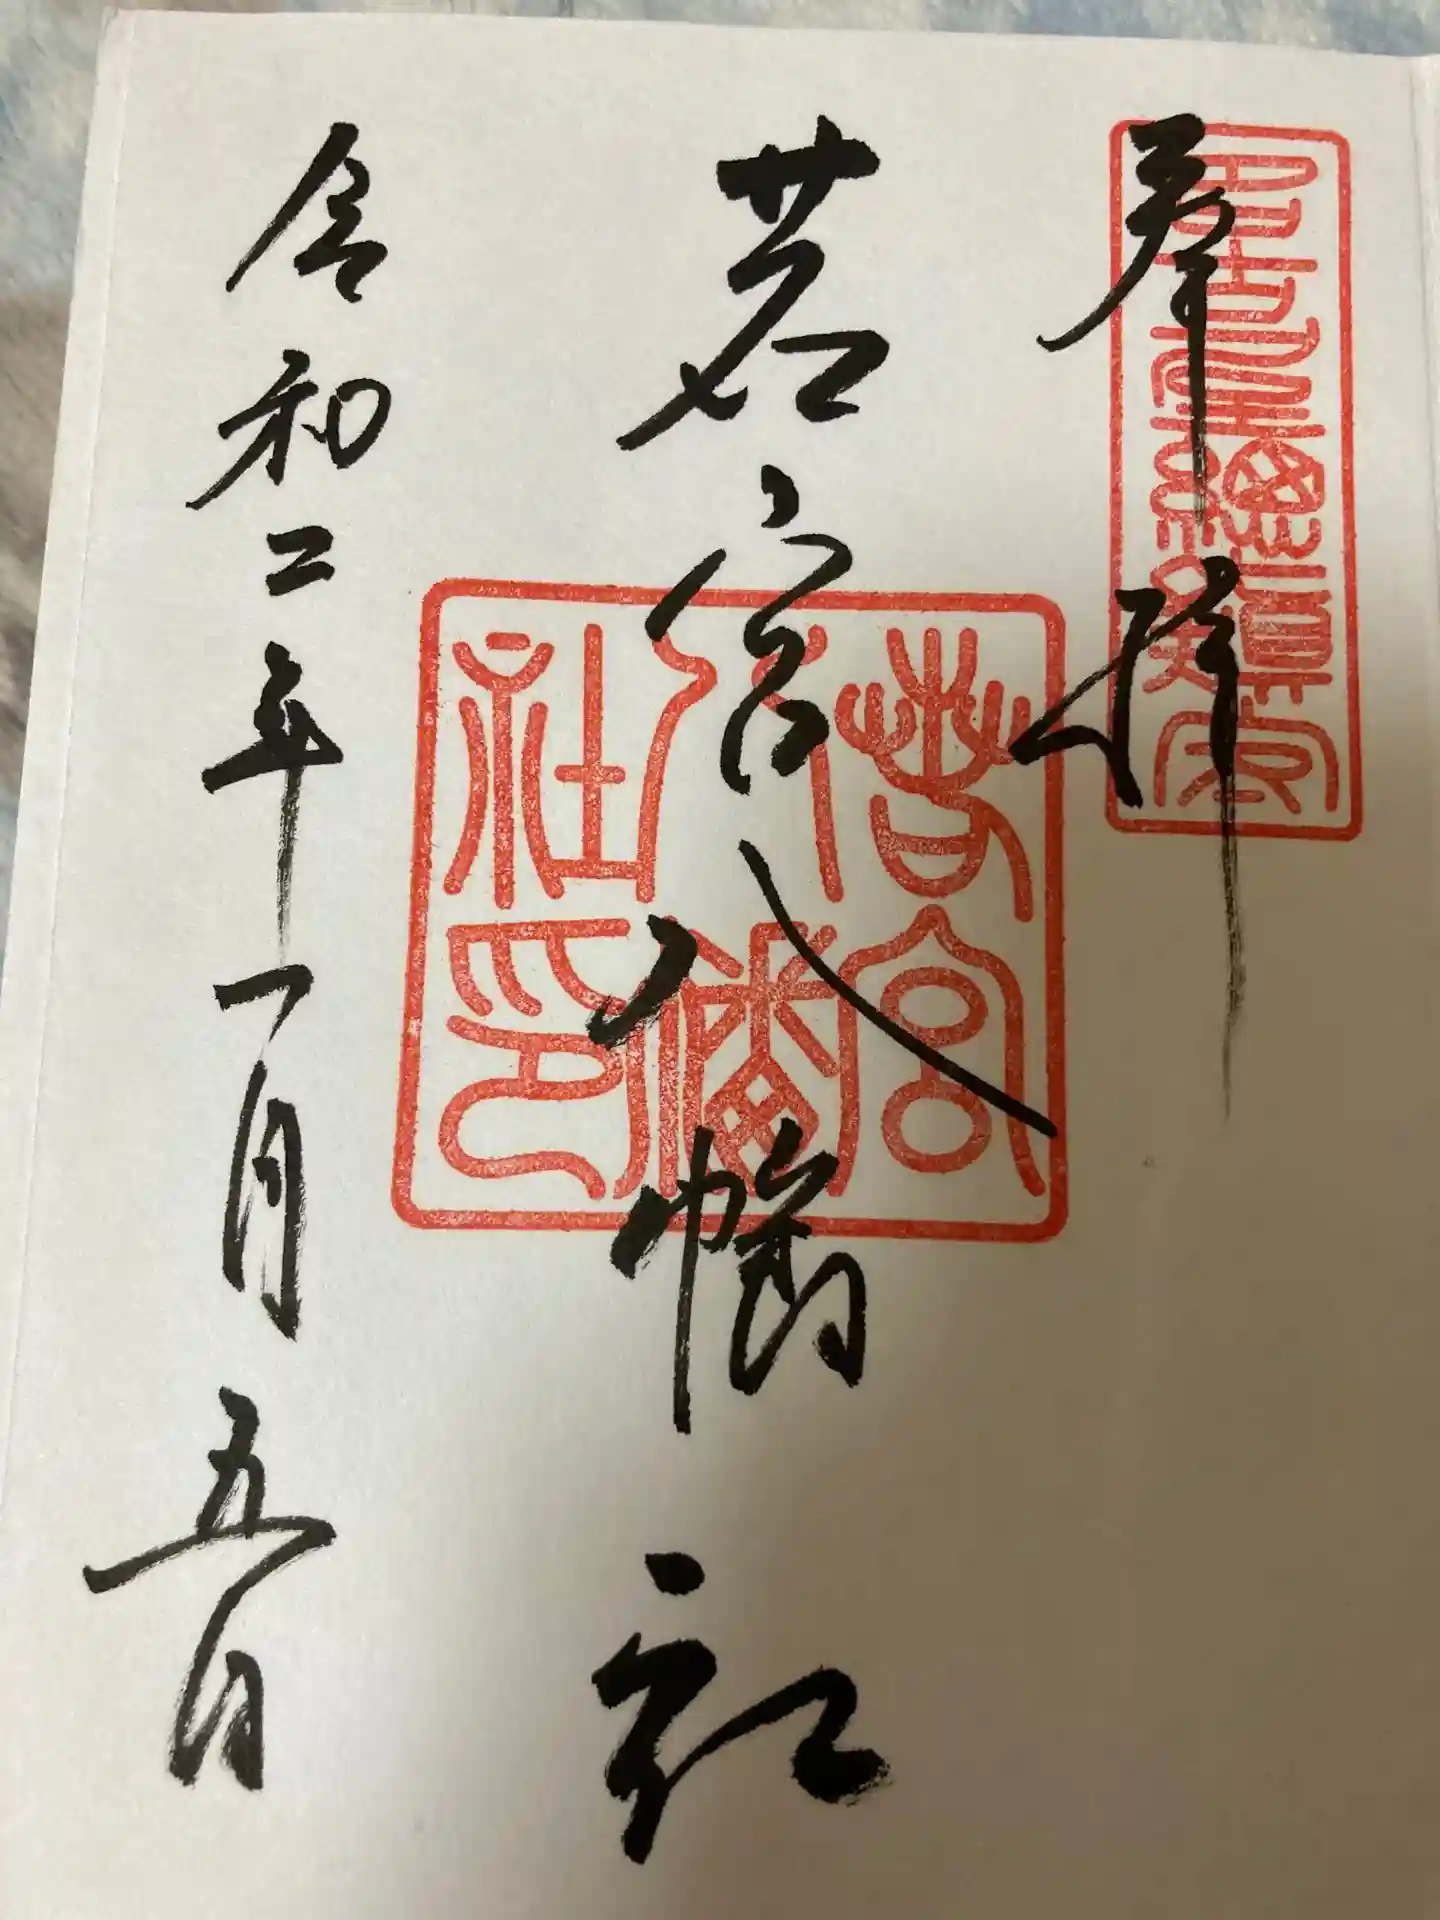 奉拝
若宮八幡社
若宮八幡社印
令和二年一月五日